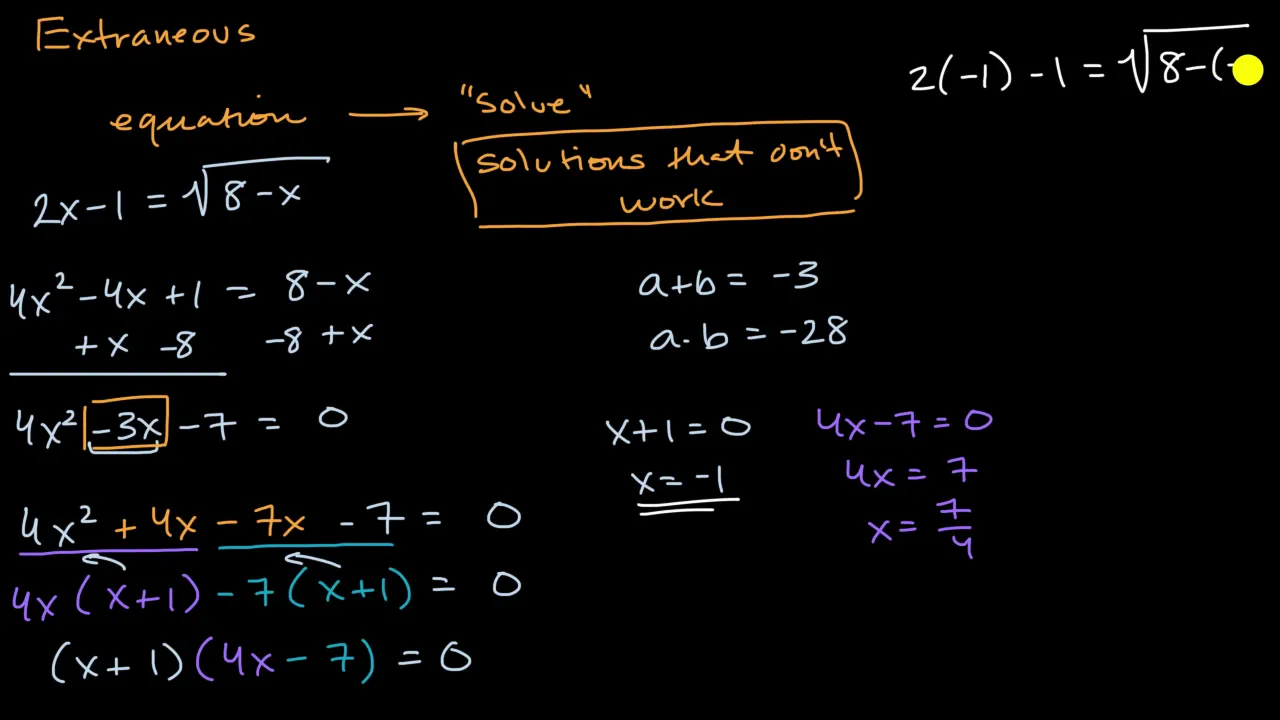 Extraneous
equation → "Solve"
solutions that don't
work
2x-1 = √8-x
4x² -4x +1 = 8-x
+x -8 -8 +x
4x² -3x -7 = 0
4x² + 4x - 7x - 7 = 0
4x (x+1) - 7 (x+1) = 0
(x+1)(4x-7) = 0
a+b = -3
a·b = -28
x+1 = 0
x = -1
4x-7 = 0
4x = 7
x = 7/4
2(-1) -1 = √8-(-